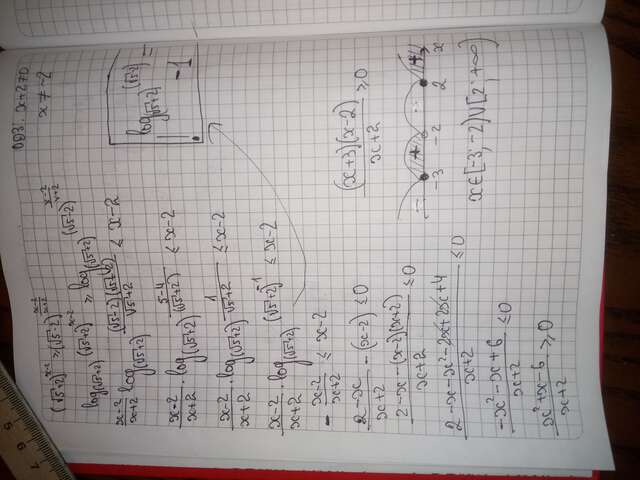 (√5+2)^(x-2) ≥ (√5-2)^((x-2)/(x+2))
ОДЗ: x+2≠0
x ≠ -2
log_(√5+2) (√5+2)^(x-2) ≥ log_(√5+2) (√5-2)^((x-2)/(x+2))
(x-2)/(x+2) log_(√5+2) ((√5-2)(√5+2))/(√5+2) ≤ x-2
(x-2)/(x+2) · log_(√5+2) (5-4)/(√5+2) ≤ x-2
(x-2)/(x+2) · log_(√5+2) 1/(√5+2) ≤ x-2
(x-2)/(x+2) · log_(√5+2) (√5+2)^(-1) ≤ x-2
log_(√5+2) (√5-2) =
-1
- (x-2)/(x+2) ≤ x-2
(2-x)/(x+2) - (x-2) ≤ 0
(2-x-(x-2)(x+2))/(x+2) ≤ 0
(2-x-x²-2x+2x+4)/(x+2) ≤ 0
(-x²-x+6)/(x+2) ≤ 0
(x²+x-6)/(x+2) ≥ 0
((x+3)(x-2))/(x+2) ≥ 0
- + - +
-3 -2 2 x
x∈[-3; -2)∪[2; +∞)